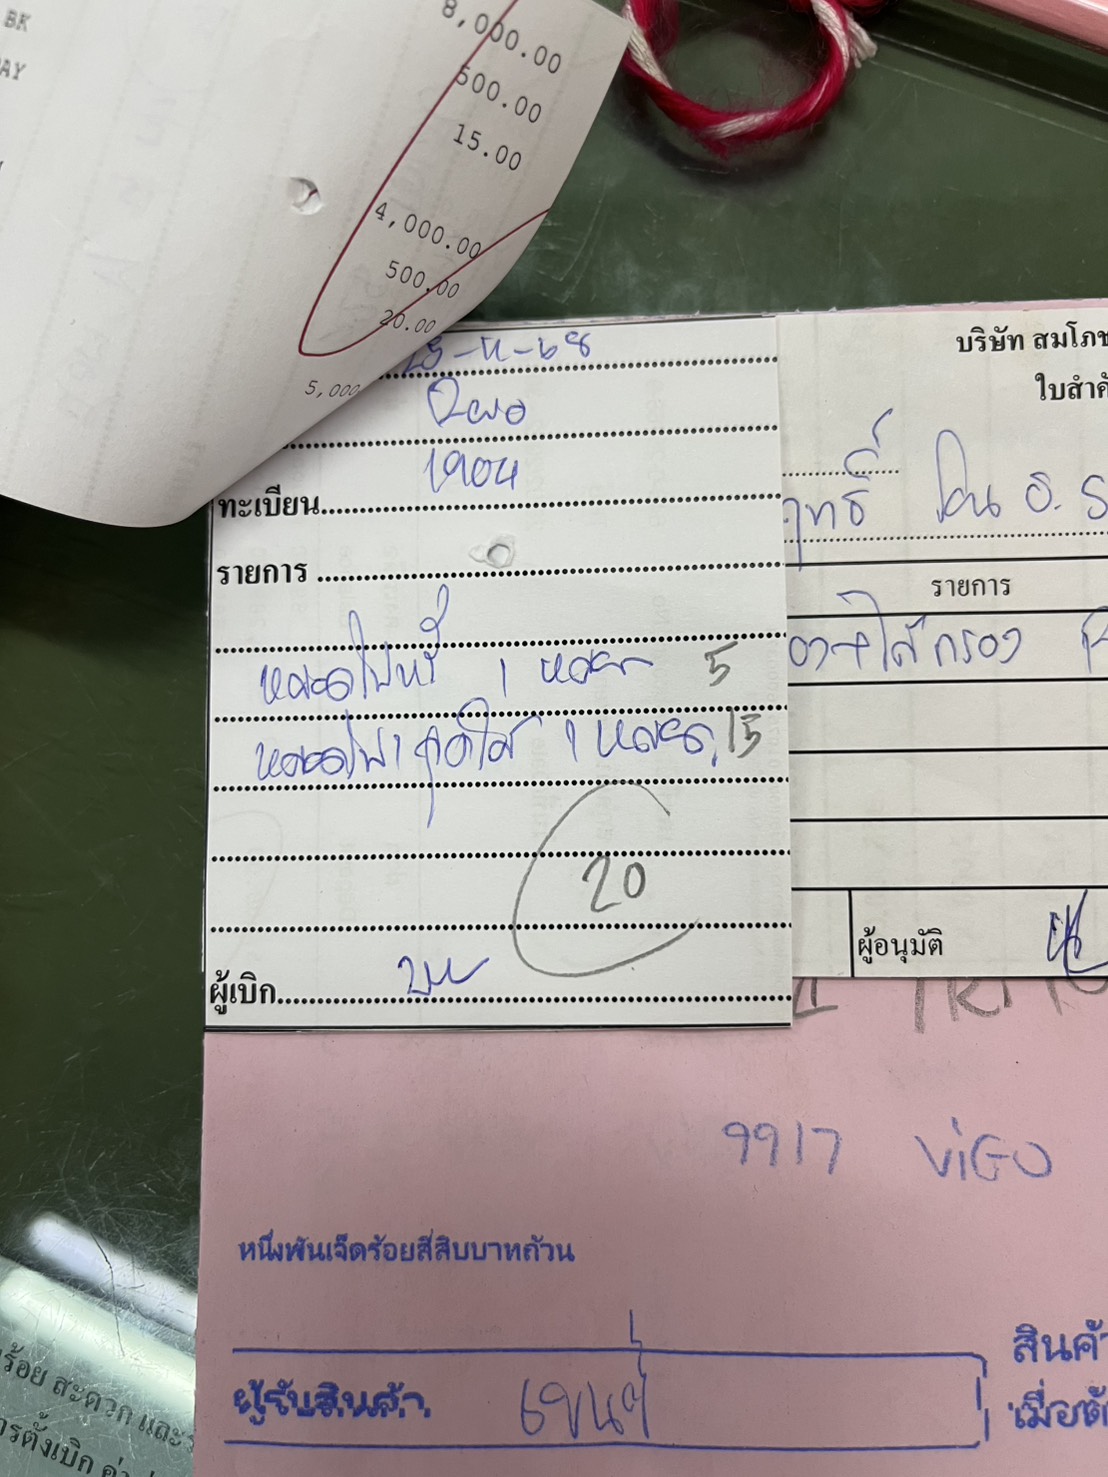 BK
AY
8,000.00
500.00
15.00
4,000.00
500.00
20.00
5,000
1904
ทะเบียน
รายการ
หลอดไฟหรี่ 1 หลอด 5
หลอดไฟ 1 จุดใส้ 1 หลอด 15
20
ผู้เบิก
บริษัท สมโภช
ใบสำคั
ฤทธิ์ โดน อ. ร
รายการ
ไส้กรอง
ผู้อนุมัติ
9917 ViGO
หนึ่งพันเจ็ดร้อยสี่สิบบาทถ้วน
ผู้รับสินค้า
สินค้า
เมื่อต
ร้อย สะดวก และ
รตั้งเบิก ค่า